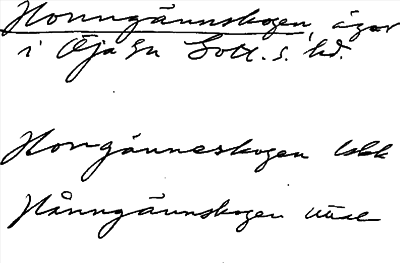 Honngännskogen, ägor
i Öja sn Gotl. s. hd.
Honngänneskogen lskk
Hånngännskogen uttal